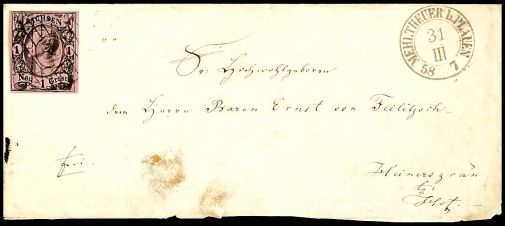 SACHSEN
1 1
Neu 1 Grosch.
MEHLTHEUER b. PLAUEN
31
III
58 7
Sr: Hochwohlgeboren
dem Herrn Baron Ernst von Feilitzsch
frei.
Heinersgrün
b/
Hof.